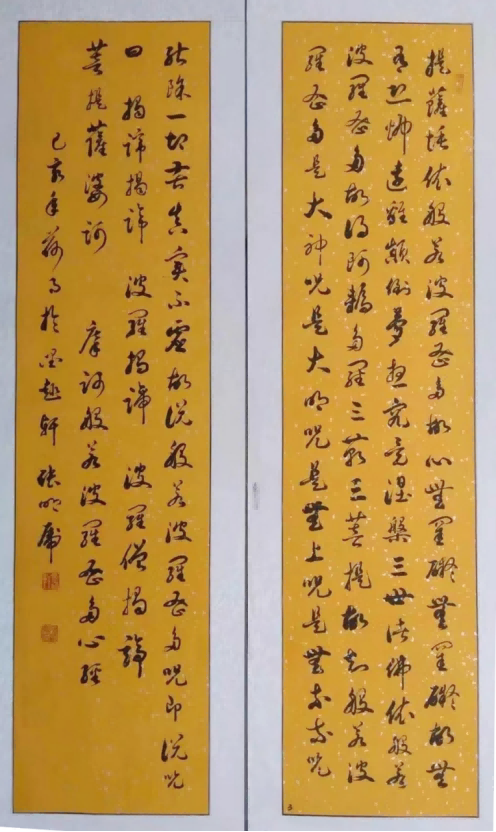 提薩埵依般若波羅蜜多故心無罣礙無罣礙故無
有恐怖遠離顛倒夢想究竟涅槃三世諸佛依般若
波羅蜜多故得阿耨多羅三藐三菩提故知般若波
羅蜜多是大神呪是大明呪是無上呪是無等等呪
能除一切苦真實不虛故說般若波羅蜜多呪即說呪
曰 揭諦揭諦 波羅揭諦 波羅僧揭諦
菩提薩婆訶 摩訶般若波羅蜜多心經
己亥年荷月於墨趣軒 張明虎